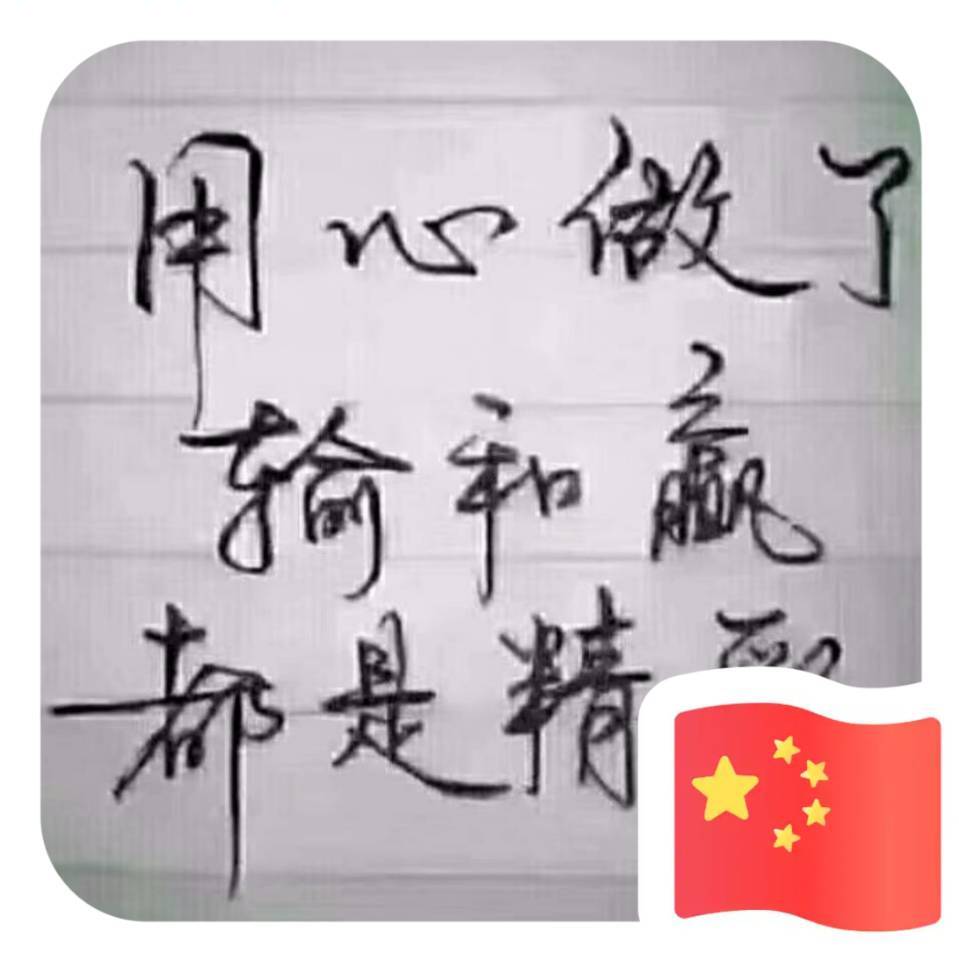 用心做了
输和赢
都是精